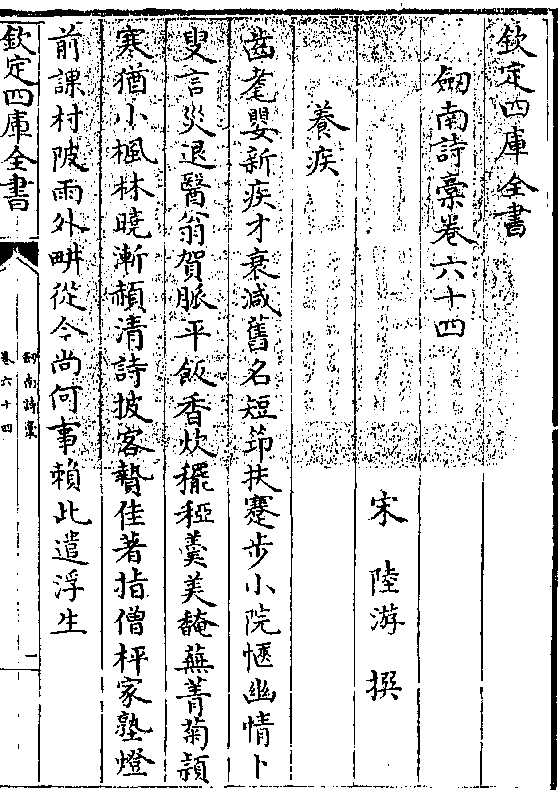 欽定四庫全書
劒南詩藁卷六十四
宋 陸游 撰
養疾
齒耄嬰新疾才衰減舊名短笻扶蹇步小院愜幽情卜
叟言災退醫翁賀脈平飯香炊䆉稏羮美醃蕪菁菊頴
寒猶小楓林曉漸頳清詩披客贄佳著指僧枰家塾燈
前課村陂雨外畊從今尚何事賴此遣浮生
欽定四庫全書
劒南詩藁
卷六十四
一